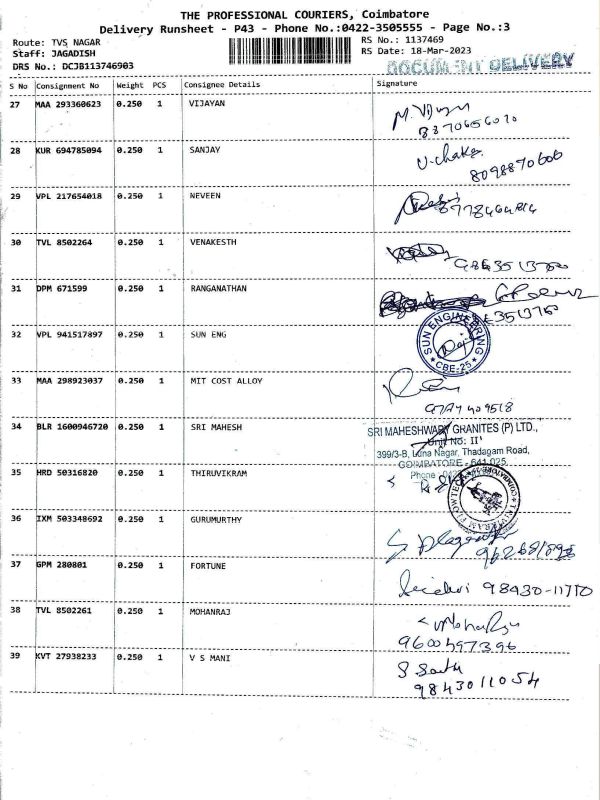 THE PROFESSIONAL COURIERS, Coimbatore
Delivery Runsheet - P43 - Phone No.:0422-3505555 - Page No.:3
Route: TVS NAGAR
Staff: JAGADISH
DRS No.: DCJB113746903
RS No.: 1137469
RS Date: 18-Mar-2023
DOCUMENT DELIVERY
S No Consignment No Weight PCS Consignee Details Signature
27 MAA 293360623 0.250 1 VIJAYAN
28 KUR 694785094 0.250 1 SANJAY
8098870606
29 VPL 217654018 0.250 1 NEVEEN
30 TVL 8502264 0.250 1 VENAKESTH
31 DPM 671599 0.250 1 RANGANATHAN
32 VPL 941517897 0.250 1 SUN ENG
SUN ENGINEERING
CBE-25
33 MAA 298923037 0.250 1 MIT COST ALLOY
34 BLR 1600946720 0.250 1 SRI MAHESH
SRI MAHESHWARY GRANITES (P) LTD.,
Unit No: II
399/3-B, Luna Nagar, Thadagam Road,
COIMBATORE - 641 025.
Phone
35 HRD 50316820 0.250 1 THIRUVIKRAM
36 IXM 503348692 0.250 1 GURUMURTHY
37 GPM 280801 0.250 1 FORTUNE
98430-11710
38 TVL 8502261 0.250 1 MOHANRAJ
9600497396
39 KVT 27938233 0.250 1 V S MANI
9843011054